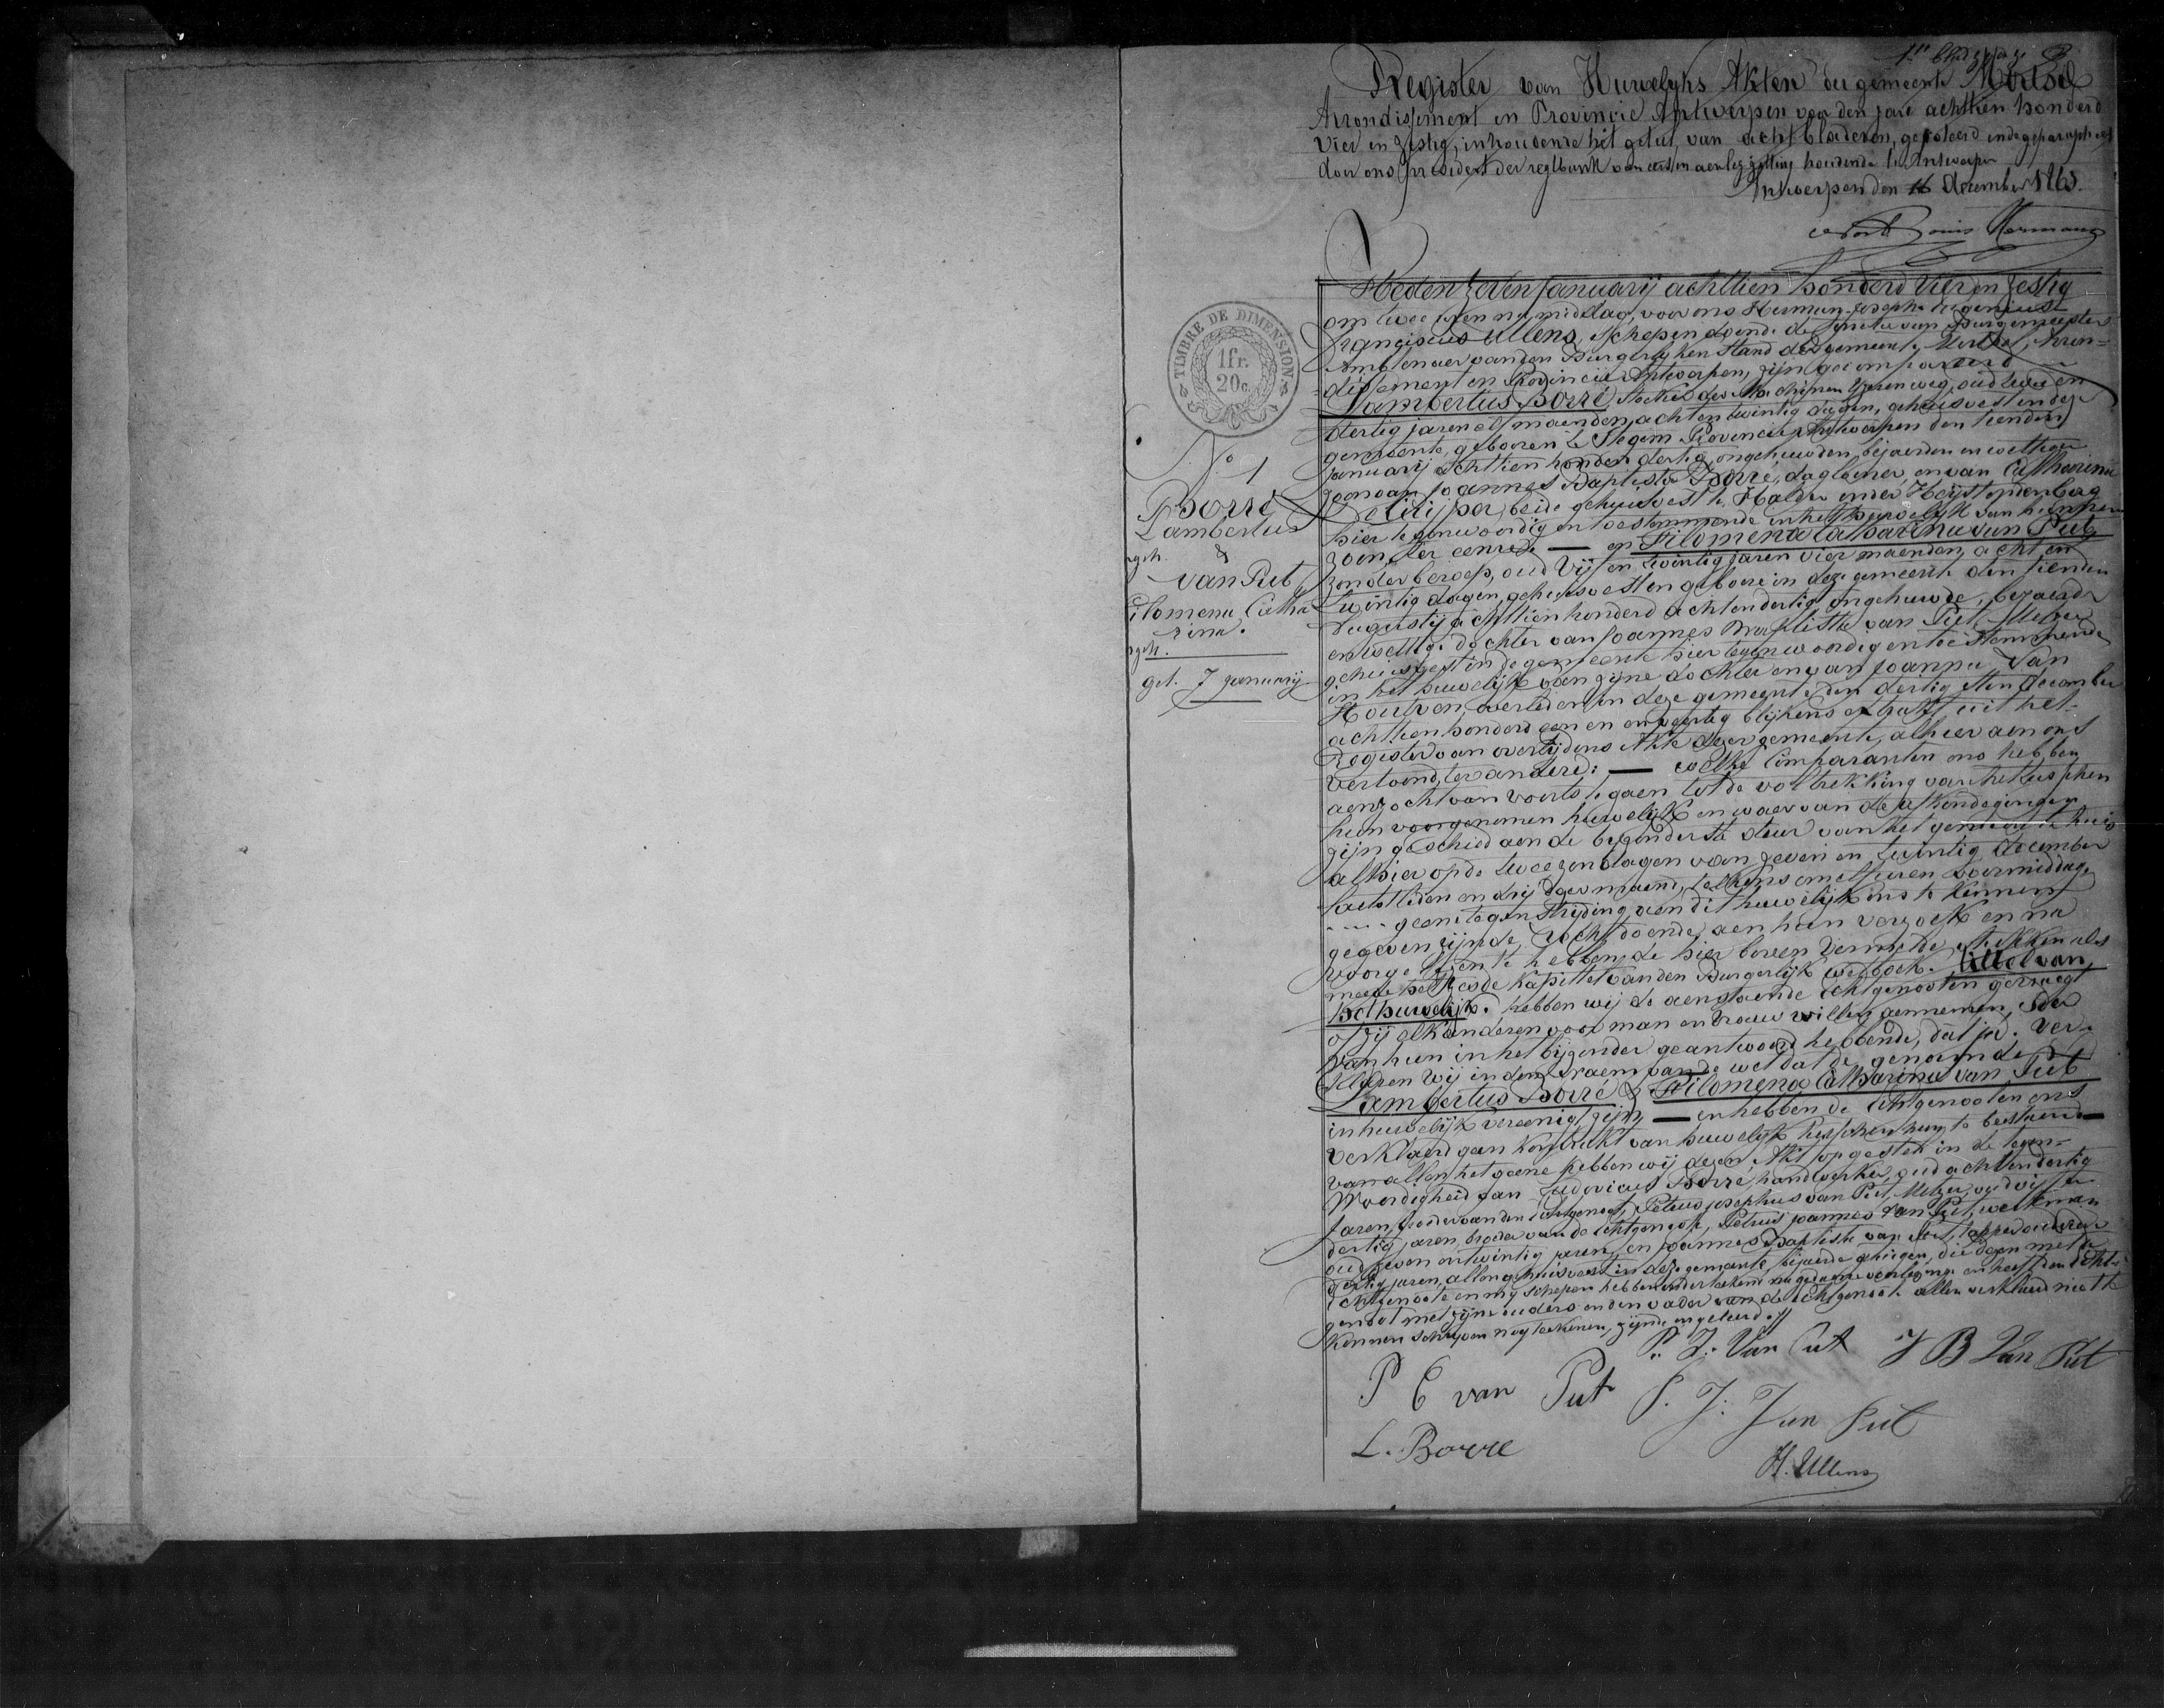 1n blad
Register van Huwelyks Akten der gemeente Mortsel
Arrondissement en Provincie Antwerpen voor den jare achttien honderd
Vier en zestig, inhoudende het getal van acht bladeren, gekoteerd en degeparapheerd
door ons president der regtbank van eersten aenleg zitting houdende te Antwerpen
Antwerpen den 16 december 1863.
Hermans
TIMBRE DE DIMENSION
1 fr.
20 c.
No 1
Borré
Lambertus
&
van Put
Filomena Catha
rina.
get. 7 january
Heden zeven January achttien honderd vier en zestig
om twee uren na middag, voor ons Herman Joseph
Franciscus Ullens, Schepen doende de functie van Burgemeester
Ambtenaer van den Burgerlyken Stand der gemeente Mortsel, Arron=
=dissement en Provincie Antwerpen, zijn gecompareerd
Lambertus Borré, stoker der Machienen Yzeren weg, oud twee en
dertig jaren elf maenden, acht en twintig dagen, gehuisvest in deze
gemeente, geboren te Itegem Provincie Antwerpen den tienden
January achttien honderd dertig, ongehuwden, bejaerden en wettigen
zoon van Joannes Baptista Borré, daglooner, en van Catharina
beide gehuisvest te Halder onder Heijstopdenberg
hier tegenwoordig en toestemmende in het huwelijk van hunnen
zoon, ter eenre: — en Filomena Catharina van Put,
zonder beroep, oud vijf en twintig jaren vier maenden, acht en
twintig dagen, gehuisvest en geboren in deze gemeente den tienden
Augustij achttien honderd acht en dertig, ongehuwde, bejaerde
en wettige dochter van Joannes Baptista van Put, Metser
gehuisvest in de gemeente hier tegenwoordig en toestemmende
in het huwelijk van zijne dochter en van Joanna Van
Houtven, overleden in deze gemeente den dertigsten december
achttien honderd een en veertig blijkens extrakt uit het
Register van overlijdens Akte dezer gemeente, alhier aen ons
vertoond, ter andere: — welke Comparanten ons hebben
aenzocht van voorts te gaen tot de voltrekking van het tusschen
hun voorgenomen huwelijk en waer van de afkondegingen
zijn geschied aen de bezonderste deur van het gemeente huis
alhier op de twee zondagen van zeven en twintig december
laetstleden en drij dezer maend, telkens om elf uren voormiddag,
geene tegenstrijding aen dit huwelijk ons te kennen
gegeven zijnde, recht doende aen hun verzoek en na
voorgelezen te hebben de hier boven vermelde stukken als
mede het zesde kapittel van den Burgerlijk wetboek. tittel van
het huwelijk. hebben wij de aenstaende Echtgenooten gevraegt
of zij elkanderen voor man en vrouw willen aennemen, eder
van hun in het bijzonder geantwoord hebbende, dat ja. Ver-
klaren wij in den naem van de wet dat de genoemde
Lambertus Borré & Filomena Catharina van Put
in huwelijk vereenigt zijn — en hebben de Echtgenooten ons
verklaerd geen kontrakt van huwelijk tusschen hun te bestaen —
van allen het geene hebben wij dezen Akt opgestelt in de tegen=
woordigheid van Ludovicus Borré, handwerker, oud acht en dertig
jaren, broeder van den Echtgenoot, Petrus Josephus van Put, Metser, oud vijf en
dertig jaren, broeder van de Echtgenoote, Petrus Joannes van Put, werkman
oud zeven en twintig jaren, en Joannes Baptista van Put, tapper oud drie
dertig jaren, allen gehuisvest in deze gemeente, bejaerde getuigen, die dezen met de
Echtgenoote en my Schepen hebben onderteekend na gedaene voorlezing en heeft den Echt-
genoot met zijne ouders en den vader van de Echtgenoote allen verklaerd niet te
kunnen schryven nog teekenen, zijnde ongeleerd.//
P. J. Van Put J B Van Put
P C van Put P. J. Van Put
L. Borre
H. Ullens